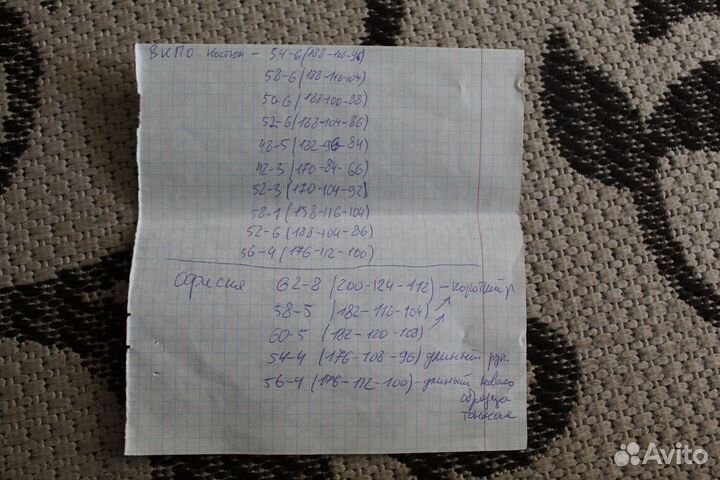 ВКПО костюм - 54-6 (188-108-96)
58-6 (188-116-104)
50-6 (188-100-88)
52-6 (188-104-86)
48-5 (182-96-84)
42-3 (170-84-66)
52-3 (170-104-92)
58-1 (158-116-104)
52-6 (188-104-86)
56-4 (176-112-100)
Офисная 62-8 (200-124-112) - короткий р.
58-5 (182-116-104)
60-5 (182-120-108)
54-4 (176-108-96) длинный рук.
56-4 (176-112-100) - длинный нового
образца
Avito